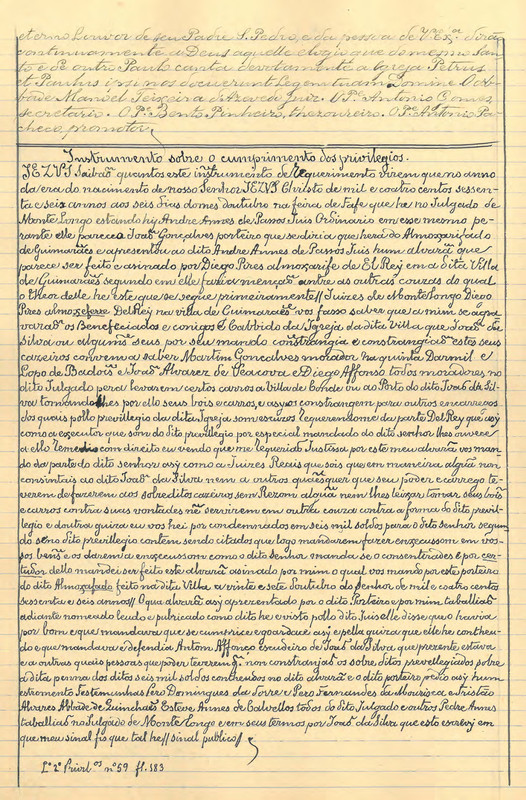 eterno Louvor de seu Padre S. Pedro, e da pessoa de V. Ex.ª darão
continuamente a Deus aquelle elogio que do mesmo San-
to e de outro Paulo canta devotamente a Igreja Petrus
et Paulus ipsi nos docuerunt Legem tuam Domine O Ab-
bade Manoel Teixeira d'Azevedo Juiz. O P.e Antonio Gomes
secretario. O P.e Bento Pinheiro, thezoureiro. O P.e Antonio Pa-
checo, promotor
Instrumento sobre o cumprimento dos privilegios.
JEZVS Saibão quantos este instrumento de Requerimento virem que no anno
da era do nacimento de nosso Senhor JEZVS Christo de mil e coatro centos sessen-
ta e seiz annos aos seis dias do mes doutubro na feira de Fafe que he no Julgado de
Monte Longo estando hy Andre Annes de Passos Juis Ordinario em esse mesmo pe-
rante elle pareceo Joaõ Gonçalves porteiro que se diria que hera do Almoxarifado
de Guimarães e apresentou ao dito Andre Annes de Passos Juis hum alvará que
parece ser feito e asinado por Diego Pires almoxarife de El Rey em a dita Villa
de Guimarães segundo em elle fazia menção antre as outras couzas do qual
o theor delle he este que se segue primeiramente// Juizes de Monte Longo Diego
Pires almoxefere Del Rey na villa de Guimarães vos fasso saber que a mim se agra-
varaõ os Beneficiados e conigos e Cabbido da Igreja da dita Villa que Joaõ da
Silva ou alguns seus por seu mando constrangia e constrangiaõ estes seus
cazeiros convem a saber Martim Gonçalves morador na quinta Darmil e
Lopo de Badois e Joaõ Alvarez de Veacova e Diego Affonso todos moradores no
dito Julgado pera levarem certos carros a Villa de Conde ou ao Porto do dito Joaõ da Sil-
va tomando lhes por ello seus bois e carros e asy os constrangem para outros encarregos
dos quais pollo previllegio da dita Igreja som escuzos Requerensome da parte Del Rey que asy
como a executor que som do dito previllegio por especial mandado do dito senhor lhes ouvece
a ello Remedio com direito eu vendo que me Requerião Justisa por este meu alvará vos man-
do da parte do dito senhor asy como a Juizes Reais que sois que em maneira algũa non
consintais ao dito Joaõ da Silva nem a outros quaesquer que seu poder e carrego te-
verem de fazerem aos sobreditos cazeiros sem Rezom algũa nem lhes leixar tomar seus bois
e carros contra suas vontades nẽ servirem em outra couza contra a forma do dito previl-
legio e doutra guiza eu vos hei por condemnados em seis mil soldos para o dito senhor segun
do seno dito previllegio contem sendo citados que logo mandarem fazer enxecussom em vos-
sos beñs e os darem a enxecussom como o dito senhor manda se o consentirades e por cer-
tidoõ dello mandei ser feito este alvará asinado por mim o qual vos mando por este porteiro
do dito Almoxafado feito na dita Villa a vinte e sete Doutubro do Senhor de mil e coatro centos
sessenta e seis annos// O qual alvará asy aprezentado por o dito Porteiro e por mim taballias
adiante nomeado leudo e pubricado como dito he e visto pollo dito Juis elle disse que o havia
por bom e que mandava que se cumprice e goardace asy e pella guiza que elle he contheu-
do e que mandava e defendia Antom Affonço escudeiro de Joaõ da Silva que prezente estava
e a outras quais pessoas que poder teverem q. non constranjaõ os sobre ditos previllegiados sobre
a dita penna dos ditos seis mil soldos contheudos no dito alvará e o dito porteiro pedio asy hum
estromento Testemunhas Pero Domingues da Torre e Pero Fernandes da Mourisca e Tristão
Alvares Abbade de Guinchães Esteve Annes de Calvellos todos do dito Julgado e outros Pedre Annes
taballias no Julgado de Monte Longo e em seus termos por Joaõ da Silva que esto escrevy em
que meu sinal fis que tal he// sinal publico//
L.º 2.º Privil.os nº 59 fl. 183